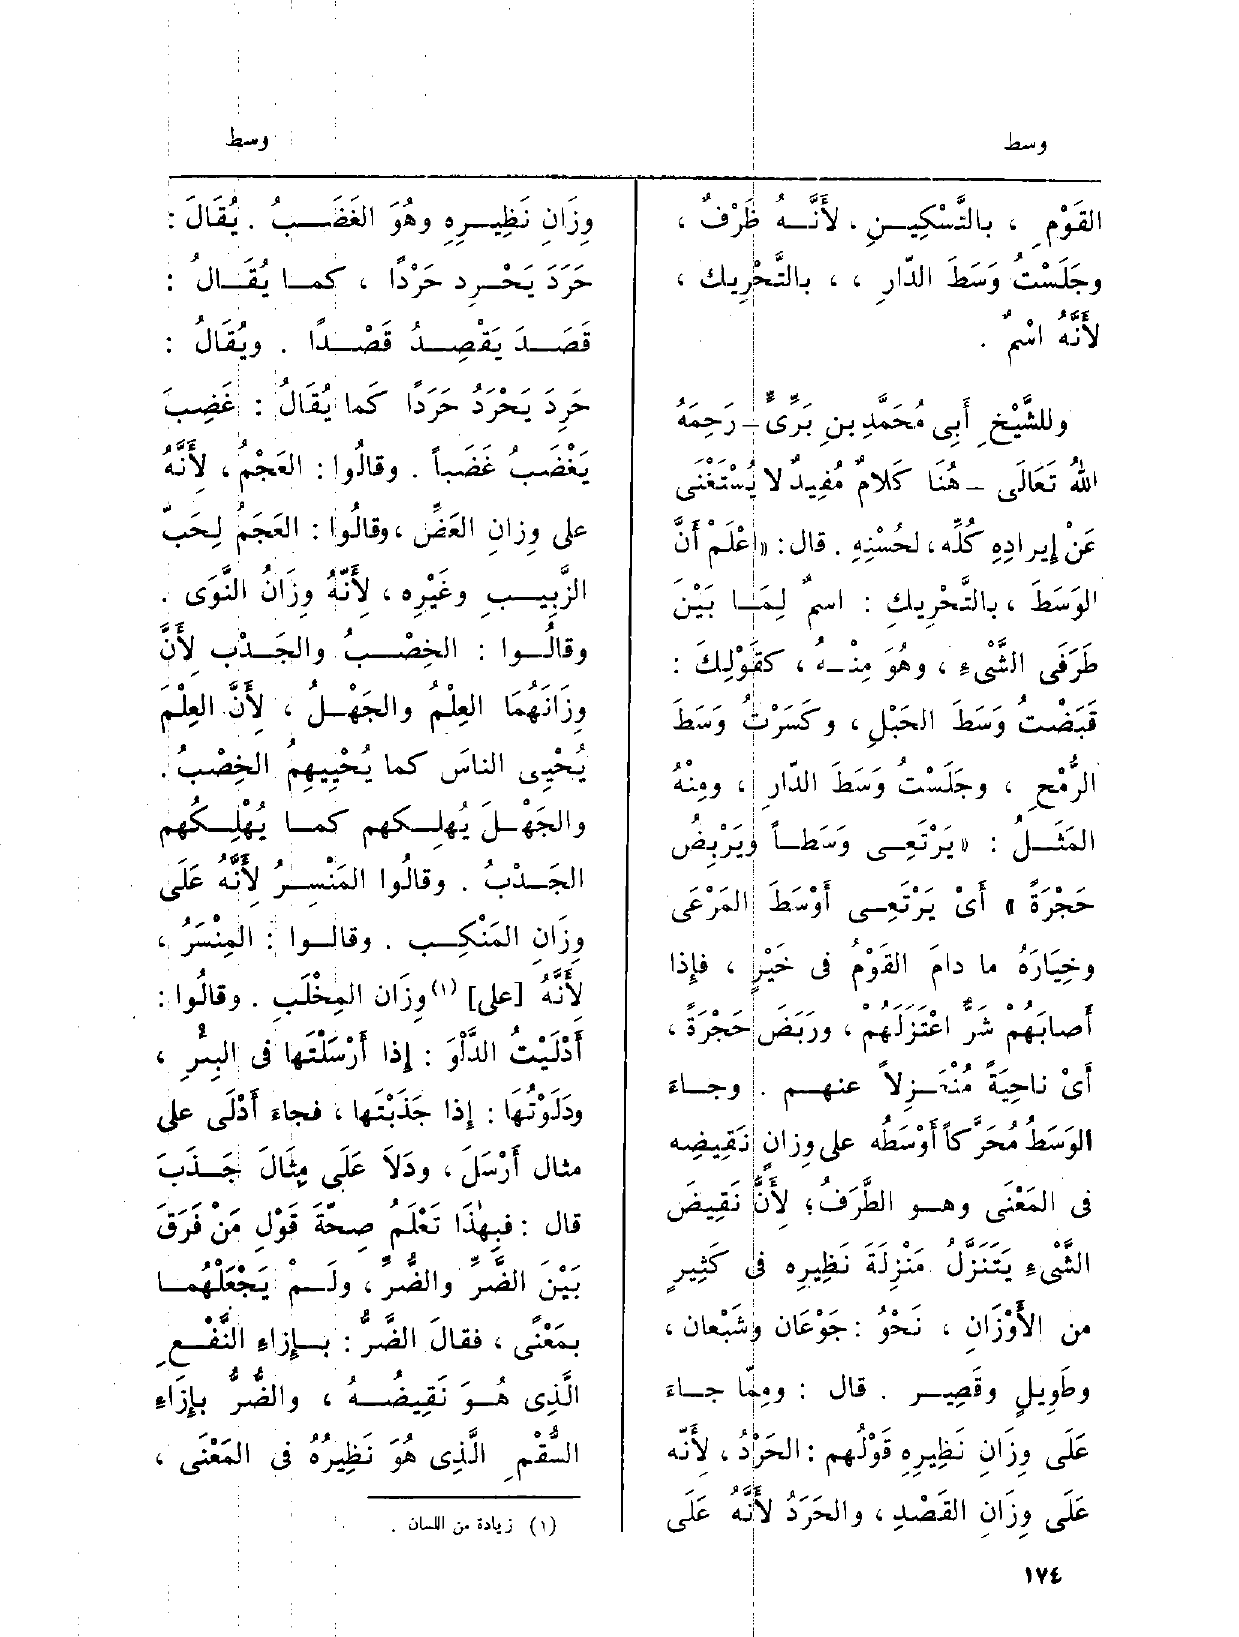 وسط
وسط
القَوْمِ ، بالتَّسْكِيـنِ ، لأَنَّـهُ ظَرْفٌ ،
وجَلَسْتُ وَسَطَ الدّارِ ، ، بالتَّحْرِيك ،
لأَنَّهُ اسْمٌ .
وللشَّيْخِ أَبِى مُحَمَّدِ بنِ بَرِّىٍّ – رَحِمَهُ
اللهُ تَعَالَى – هُنَا كَلَامٌ مُفِيدٌ لا يُسْتَغْنَى
عَنْ إيرادِهِ كُلِّه ، لحُسْنِهِ . قال : «اعْلَمْ أَنَّ
الوَسَطَ ، بالتَّحْرِيكِ : اسمٌ لِمَـا بَيْنَ
طَرَفَى الشَّىْءِ ، وهُوَ مِنْـهُ ، كقَوْلِكَ :
قَبَضْتُ وَسَطَ الحَبْلِ ، وكَسَرْتُ وَسَطَ
الرُّمْحِ ، وجَلَسْتُ وَسَطَ الدّارِ ، ومِنْهُ
المَثَـلُ : «يَرْتَعِـى وَسَطـاً ويَرْبِضُ
حَجْرَةً » أَىْ يَرْتَعِـى أَوْسَطَ المَرْعَى
وخِيَارَهُ ما دامَ القَوْمُ فى خَيْرٍ ، فإذا
أَصابَهُم شَرٌّ اعْتَزَلَهُم ، ورَبَضَ حَجْرَةً ،
أَىْ ناحِيَةً مُنْعَـزِلاً عنهـم . وجـاءَ
الوَسَطُ مُحَرَّكاً أَوْسَطُه على وِزانِ نَقِيضِه
فى المَعْنَى وهـو الطَّرَفُ؛ لِأَنَّ نَقِيضَ
الشَّىْءِ يَتَنَزَّلُ مَنْزِلَةَ نَظِيرِه فى كَثِيرٍ
من الأَوْزَانِ ، نَحْوُ : جَوْعَان وشَبْعان ،
وطَوِيلٍ وقَصِيـر . قال : ومِمّا جـاءَ
عَلَى وِزَانِ نَظِيرِهِ قَوْلُهم : الحَرْدُ ، لأَنّه
عَلَى وِزَانِ القَصْدِ ، والحَرَدُ لأَنَّهُ عَلَى
وِزَانِ نَظِيـرِهِ وهُوَ الغَضَـبُ . يُقَالَ :
حَرَدَ يَحْـرِد حَرْدًا ، كمـا يُقَـالُ :
قَصَـدَ يَقْصِـدُ قَصْـدًا . ويُقَالُ :
حَرِدَ يَحْرَدُ حَرَدًا كَما يُقَالُ : غَضِبَ
يَغْضَبُ غَضَباً . وقالُوا : العَجْمُ ، لأَنَّهُ
على وِزانِ العَضِّ ، وقالُوا : العَجَمُ لِحَبِّ
الزَّبِيـبِ وغَيْرِه ، لِأَنّهُ وِزَانُ النَّوَى .
وقالُـوا : الخِصْـبُ والجَـدْب لأَنَّ
وِزَانَهُمَا العِلْمُ والجَهْـلُ ، لِأَنَّ العِلْمَ
يُحْيِى الناسَ كما يُحْيِيهِمُ الخِصْبُ .
والجَهْـلَ يُهلِـكهم كمـا يُهْلِـكُهم
الجَـدْبُ . وقالُوا المَنْسِـرُ لأَنّهُ عَلَى
وِزانِ المَنْكِـب . وقالـوا : المِنْسَرُ ،
لِأَنَّهُ [على] (١) وِزَان المِخْلَبِ . وقالُوا :
أَدْلَيْتُ الدَّلْوَ : إِذا أَرْسَلْتَها فى البِئْرِ ،
ودَلَوْتُهَا : إِذا جَذَبْتَها ، فجاءَ أَدْلَى على
مثال أَرْسَلَ ، ودَلاَ عَلَى مِثَالَ جَـذَبَ
قال : فبِهٰذَا تَعْلَمُ صِحَّةَ قَوْلِ مَنْ فَرَقَ
بَيْنَ الضَّرِّ والضُّرِّ ، ولَـمْ يَجْعَلْهُمـا
بمَعْنًى ، فقالَ الضَّرُّ : بـإِزاءِ النَّفْـعِ
الَّذِى هُـوَ نَقِيضُـهُ ، والضُّرُّ بإِزَاءِ
السُّقْمِ الَّذِى هُوَ نَظِيرُهُ فى المَعْنَى ،
(١) زيادة من اللسان .
١٧٤